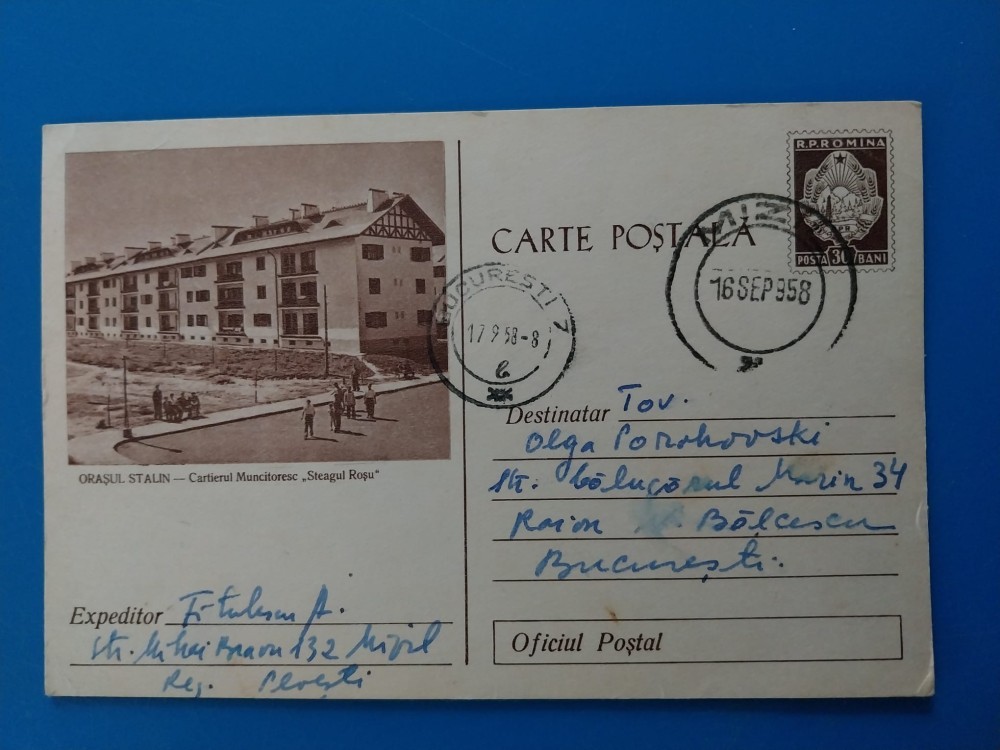 R.P.ROMINA
POSTA 30 BANI
CARTE POȘTALĂ
MIZIL
16 SEP 958
BUCUREȘTI 7
17.9.58-8
ORAȘUL STALIN — Cartierul Muncitoresc „Steagul Roșu"
Destinatar Tov.
Olga Porohovski
Str. Călugărul Marin 34
Raion N. Bălcescu
București.
Expeditor Titulescu A.
Str. Mihai Bravu 132 Mizil
Reg. Ploești
Oficiul Poștal